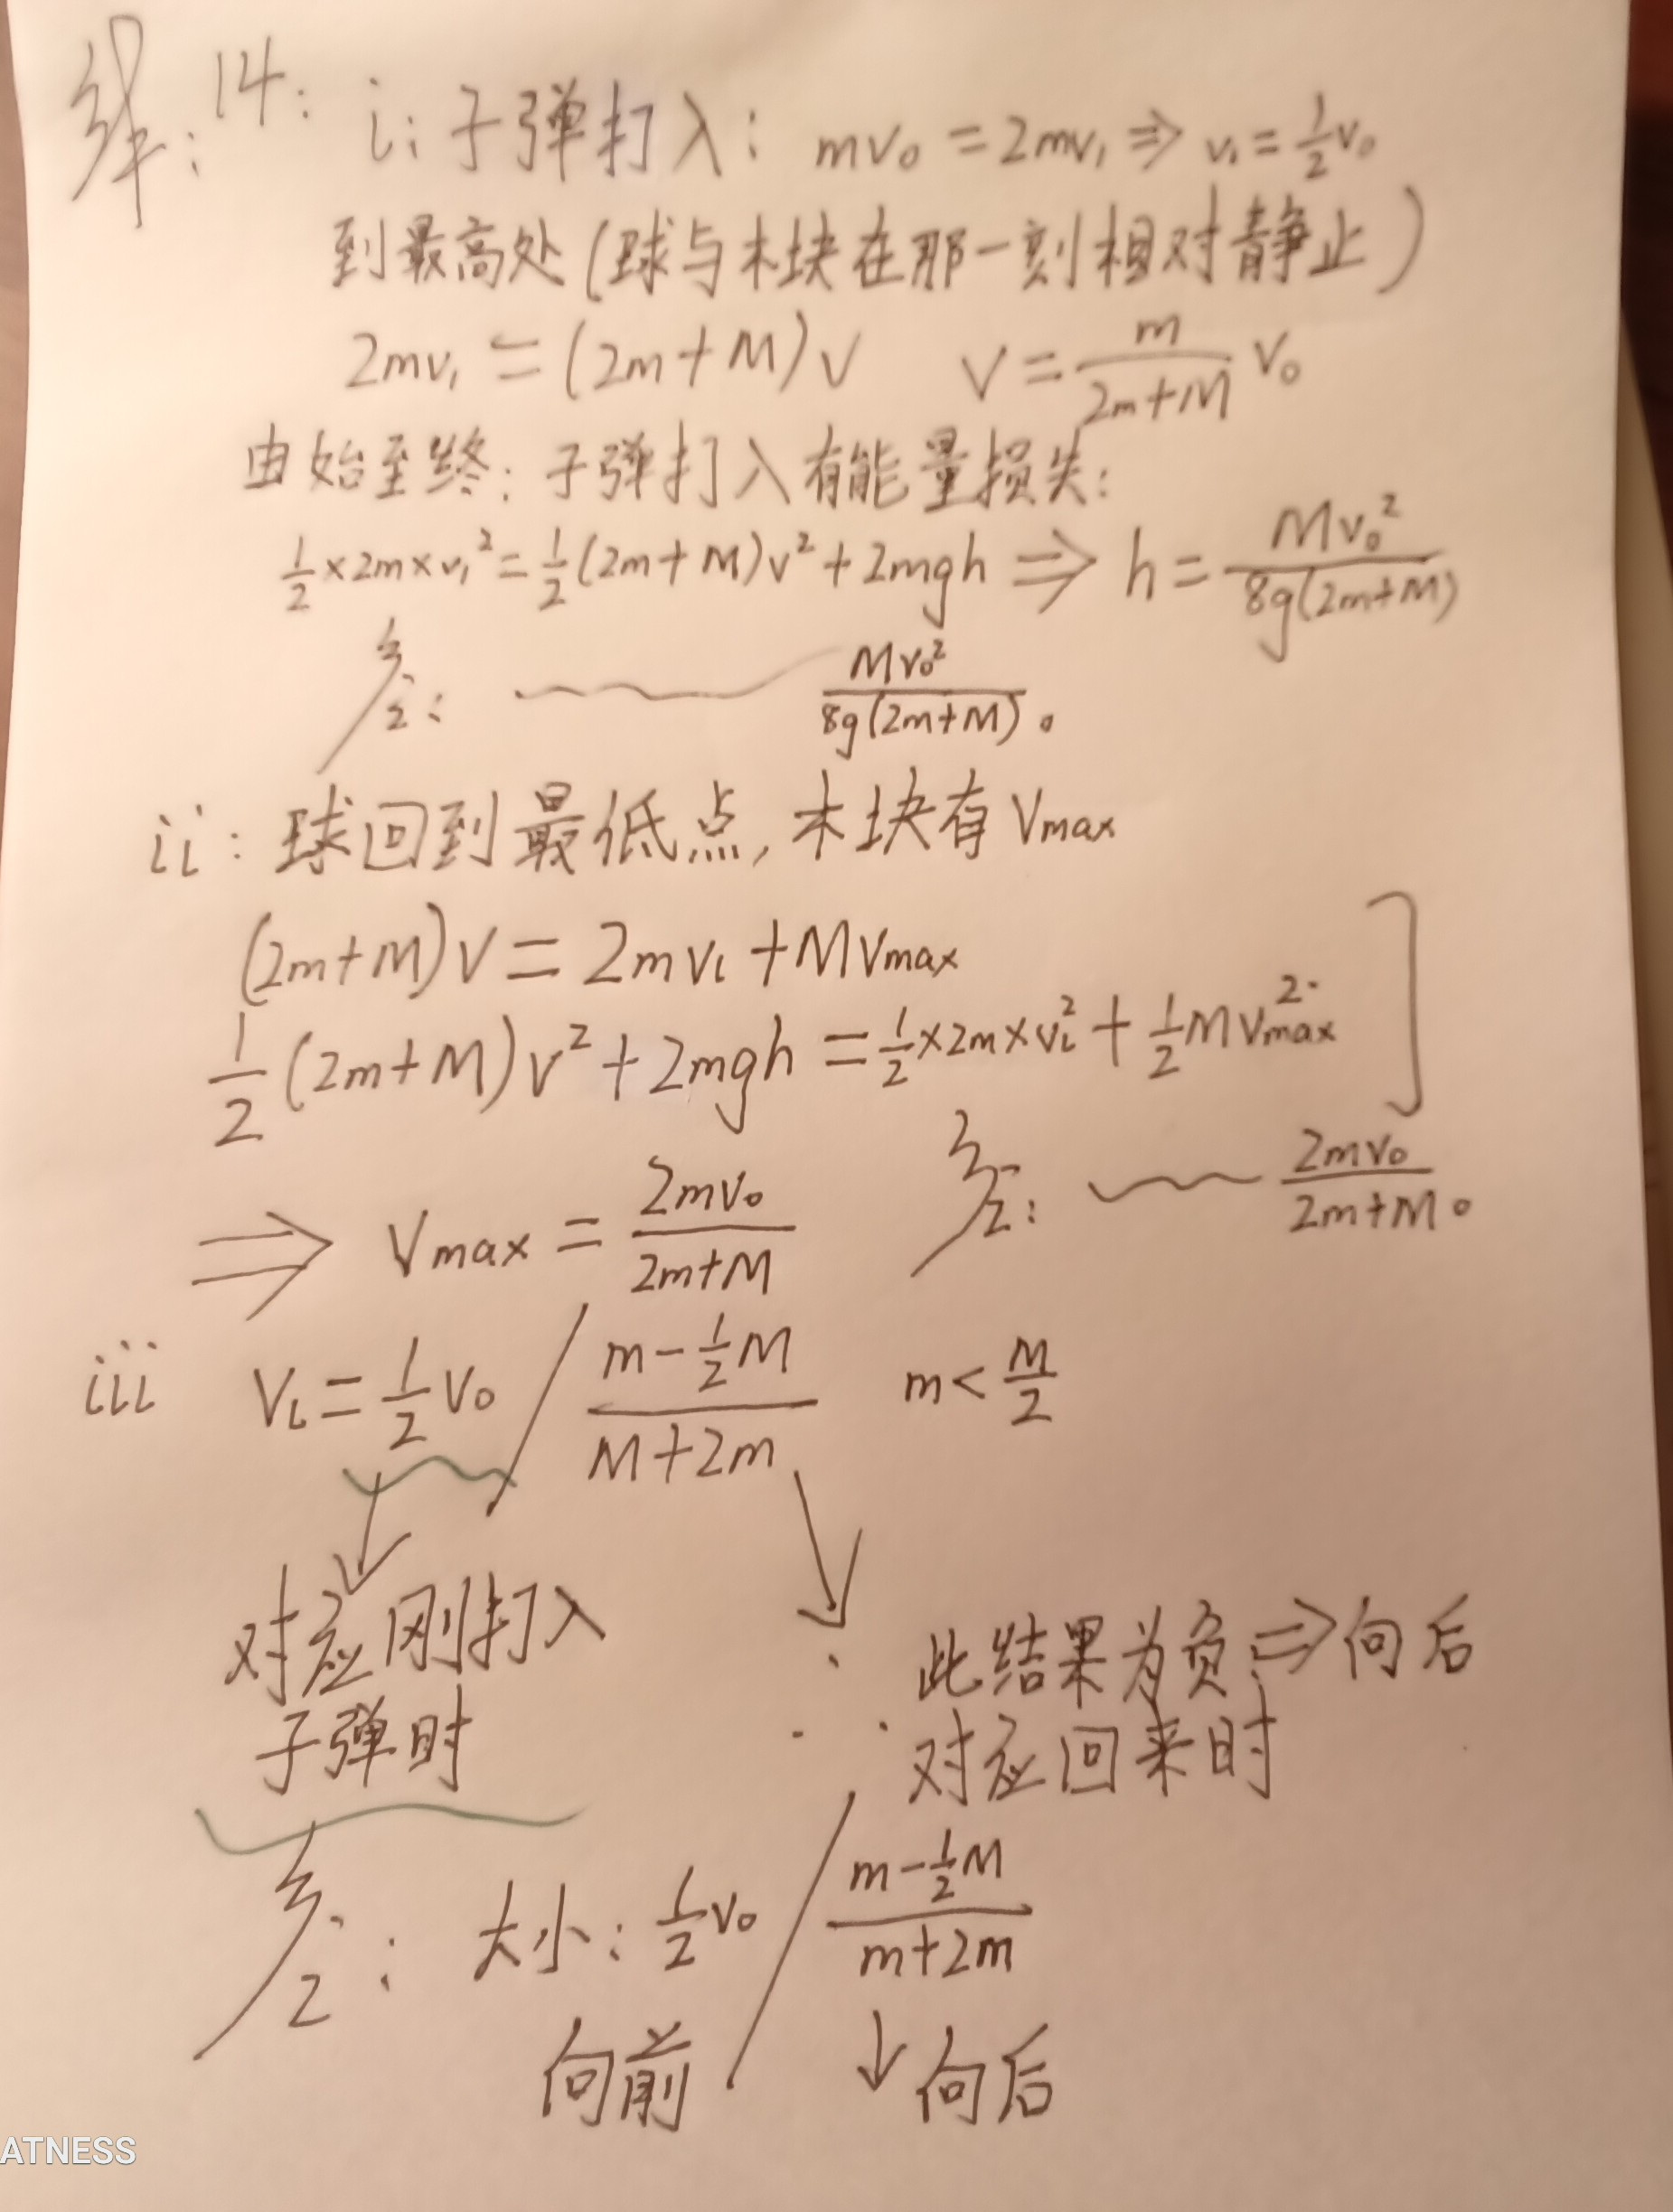 解: 14: i: 子弹打入: mv₀ = 2mv₁ ⇒ v₁ = 1/2 v₀
到最高处(球与木块在那一刻相对静止)
2mv₁ = (2m+M)v  v = m/(2m+M) v₀
由始至终: 子弹打入有能量损失:
1/2×2m×v₁² = 1/2(2m+M)v² + 2mgh ⇒ h = Mv₀²/8g(2m+M)
Mv₀²/8g(2m+M)。
ii: 球回到最低点, 木块有Vmax
(2m+M)v = 2mv₂ + MVmax
1/2(2m+M)v² + 2mgh = 1/2×2m×v₂² + 1/2MVmax²
⇒ Vmax = 2mv₀/2m+M  2mv₀/2m+M。
iii v₂ = 1/2 v₀ / m-1/2M/M+2m  m < M/2
对应刚打入
子弹时
∴ 此结果为负 ⇒ 向后
对应回来时
大小: 1/2 v₀ / m-1/2M/m+2m
向前 ↓ 向后
ATNESS